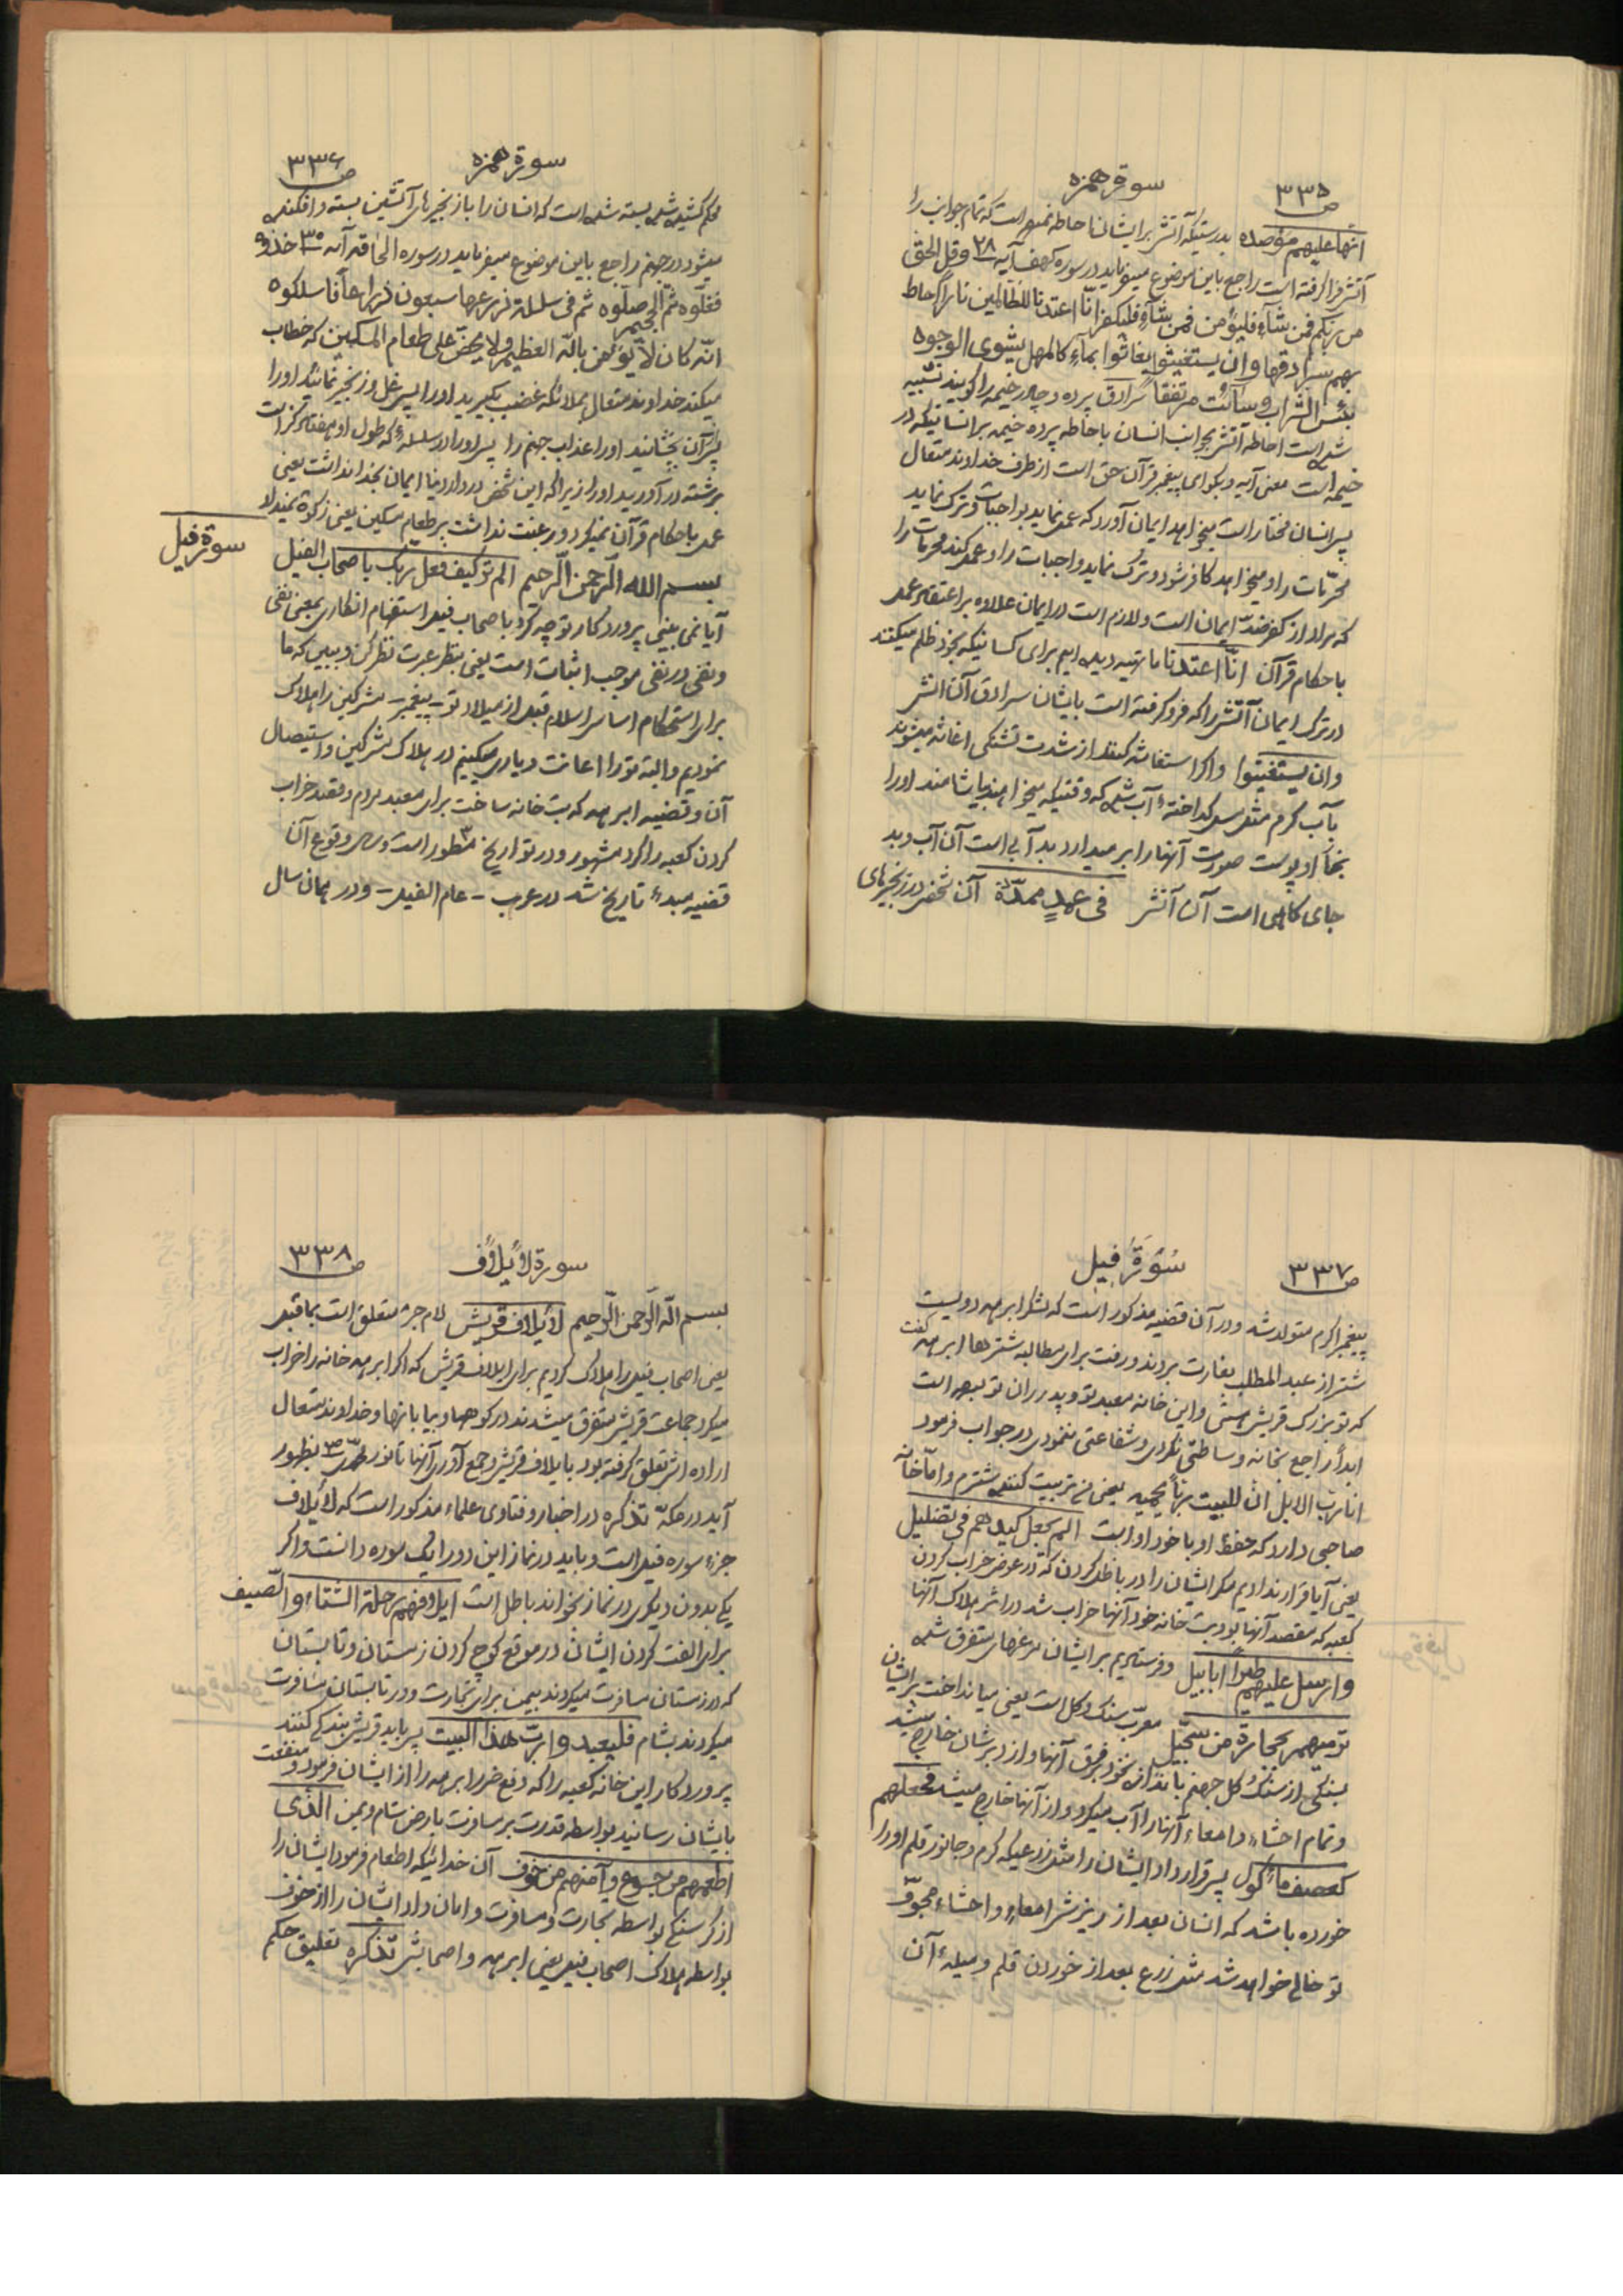 سورة همزه ص ۳۳۵
انها علیهم مؤصده بدرستیکه آتش بر ایشان احاطه نموده است که تمام جوانب را
آتش فرا گرفته است راجع باین موضوع میفرماید در سوره کهف آیه ۲۸ وقل الحق
من ربکم فمن شاء فلیؤمن فمن شاء فلیکفر انّا اعتدنا للظالمین ناراً احاط
بهم سرادقها وان یستغیثوا یغاثوا بماءٍ کالمهل یشوی الوجوه
بئس الشراب وسائت مرتفقا سرادق پرده و چادر خیمه را گویند تشبیه
شده است احاطه آتش بجوانب انسان باحاطه پرده خیمه بر انسانیکه در
خیمه است معنی آیه و بگو ای پیغمبر قرآن حق است از طرف خداوند متعال
پس انسان مختار است میخواهد ایمان آورد که عمل نماید بواجبات و ترک نماید
محرّمات را و میخواهد کافر شود و ترک نماید واجبات را و عمل کند محرمات را
که مراد از کفر ضدّ ایمان است و لازم است در ایمان علاوه بر اعتقاد عمل
باحکام قرآن انّا اعتدنا ما تهیه دیده ایم برای کسانیکه بخود ظلم میکنند
در ترک ایمان آتش را که فرو گرفته است بایشان سرادق آن آتش
وان یستغیثوا و اگر استغاثه کنند از شدت تشنگی اغاثه میشوند
بآب گرم مثل مس گداخته آب شده که وقتیکه میخواهند بیاشامند او را
بخار او پوست صورت آنها را بر میدارد بد آبی است آن آب و بد
جای گاهی است آن آتش فی عمدٍ ممدّدة آن شخص در زنجیرهای
سورة همزه ص ۳۳۶
محکم کشیده شده بسته شده است که انسان را با زنجیرهای آتشین بسته و افکنده
میشود در جهنم راجع باین موضوع میفرماید در سوره الحاقه آیه ۳۰ خذوه
فغلّوه ثمّ الجحیم صلّوه ثم فی سلسلة ذرعها سبعون ذراعاً فاسلکوه
انّه کان لا یؤمن باللّه العظیم ولا یحضّ علی طعام المسکین که خطاب
میکند خداوند متعال بملائکه غضب بگیرید او را پس غل و زنجیر نمائید او را
پس از آن بچشانید او را عذاب جهنم را پس او را در سلسلهٔ که طول او هفتاد گز است
برشته در آورید او را زیرا که این شخص در دار دنیا ایمان بخدا نداشت یعنی
عمل باحکام قرآن نمیکرد و رغبت نداشت بر طعام مسکین یعنی زکوة نمیداد
سورة فیل
بسم الله الرّحمن الرّحیم الم تر کیف فعل ربک باصحاب الفیل
آیا نمی بینی پروردگار تو چه کرد باصحاب فیل استفهام انکاری بمعنی نفی
و نفی در نفی موجب اثبات است یعنی بنظر عبرت نظر کن و ببین که ما
برای استحکام اساس اسلام قبل از میلاد تو - پیغمبر - مشرکین را هلاک
نمودیم و البته تو را اعانت و یاری میکنیم در هلاک مشرکین و استیصال
آن و قضیه ابرهه که بت خانه ساخت برای معبد مردم و قصد خراب
کردن کعبه را کرد مشهور و در تواریخ مسطور است و سال وقوع آن
قضیه مبدء تاریخ شد در عرب - عام الفیل - و در همان سال
سُورَةُ فِیلِ ص ۳۳۷
پیغمبر اکرم متولد شد و در آن قضیه مذکور است که لشکر ابرهه دویست
شتر از عبد المطلب بغارت بردند و رفت برای مطالبه شترها ابرهه گفت
که تو بزرگ قریش هستی و این خانه معبد تو و پدران تو بوده است
ابداً راجع بخانه وساطتی نکردی و شفاعتی ننمودی در جواب فرمود
انا ربّ الابل انّ للبیت ربّاً یحمیه یعنی من تربیت کننده شترم و امّا خانه
صاحبی دارد که حفظ او با خود او است الم یجعل کیدهم فی تضلیل
یعنی آیا قرار ندادیم مکر ایشان را در باطل کردن که در عوض خراب کردن
کعبه که مقصد آنها بود بت خانه خود آنها خراب شد در اثر هلاک آنها
وارسل علیهم طیراً ابابیل و فرستادیم بر ایشان مرغهای متفرق شده
ترمیهم بحجارة من سجّیل معرّب سنگ و گل است یعنی میانداخت بر ایشان
سنگی از سنگ و گل جهنم باندازه نخود بفرق آنها و از دبرشان خارج میشد
و تمام احشاء و امعاء آنها را آب میکرد و از آنها خارج میشد فجعلهم
کعصف مأکول پس قرار داد ایشان را مثل زرعیکه کرم و جانور قلم او را
خورده باشد که انسان بعد از ریزش امعاء و احشاء مجوّف
تو خالی خواهد شد مثل زرع بعد از خوردن قلم و میلهٔ آن
سورة لأیلاف ص ۳۳۸
بسم اللّه الرّحمن الرّحیم لأیلاف قریش لام جر متعلق است بما قبل
یعنی اصحاب فیل را هلاک کردیم برای ایلاف قریش که اگر ابرهه خانه را خراب
میکرد جماعت قریش متفرق میشدند در کوهها و بیابانها و خداوند متعال
اراده اش تعلق گرفته بود بایلاف قریش و جمع آوری آنها تا نور محمدی ص بظهور
آید در مکّه تذکره در اخبار و فتاوی علماء مذکور است که لأیلاف
جزء سوره فیل است و باید در نماز این دو را یک سوره دانست و اگر
یکی بدون دیگری در نماز بخواند باطل است ایلافهم رحلة الشتاء والصّیف
برای الفت کردن ایشان در موقع کوچ کردن زمستان و تابستان
که در زمستان مسافرت میکردند بیمن برای تجارت و در تابستان مسافرت
میکردند بشام فلیعبدوا ربّ هذا البیت پس باید قریش بندگی کنند
پروردگار این خانه کعبه را که دفع ضرر ابرهه را از ایشان فرمود و منفعت
بایشان رسانید بواسطه قدرت بر مسافرت بارض شام و یمن الّذی
اطعمهم من جوع وآمنهم من خوف آن خدائیکه اطعام فرمود ایشان را
از گرسنگی بواسطه تجارت و مسافرت و امان داد ایشان را از خوف
بواسطه هلاک اصحاب فیل یعنی ابرهه و اصحابش تذکره تعلیق حکم